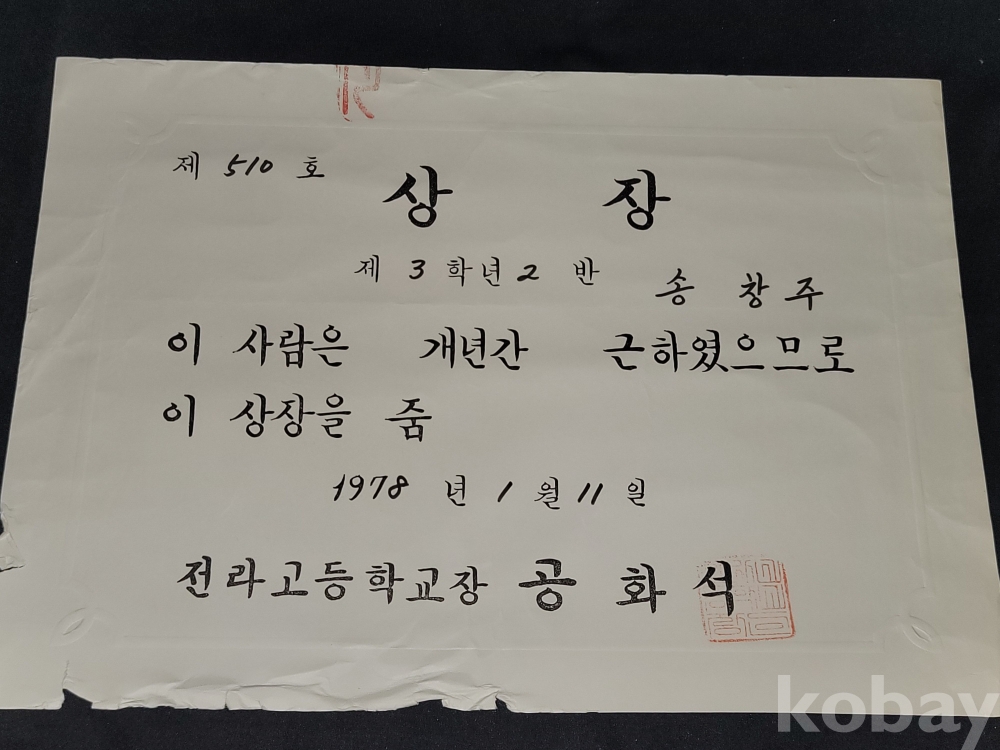 제 510 호
상 장
제 3 학년 2 반 송 창 주
이 사람은 개년간 근하였으므로
이 상장을 줌
1978 년 1 월 11 일
전라고등학교장 공 화 석
kobay